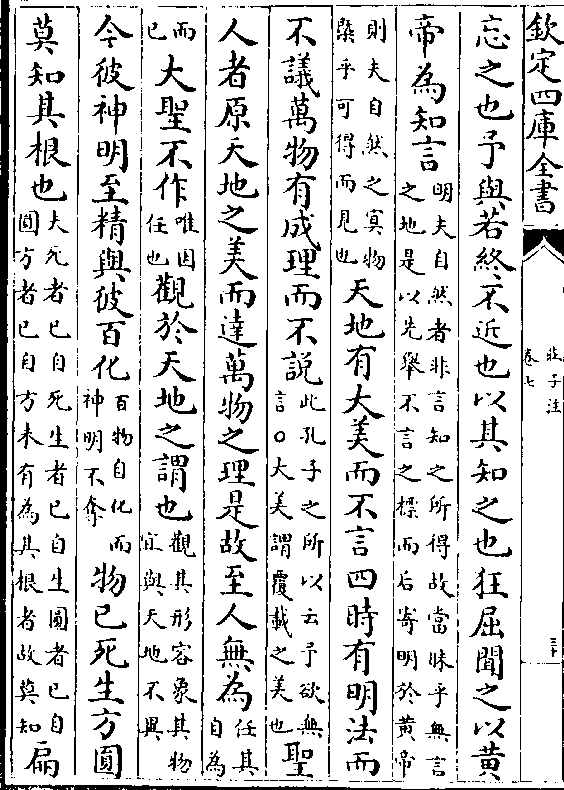 欽定四庫全書
莊子注
卷七
三十
忘之也予與若終不近也以其知之也狂屈聞之以黃
帝為知言
明夫自然者非言知之所得故當昧乎無言
之地是以先舉不言之標而后寄明於黃帝
則夫自然之冥物
槩乎可得而見也
天地有大美而不言四時有明法而
不議萬物有成理而不說
此孔子之所以云予欲無
言○大美謂覆載之美也
聖
人者原天地之美而達萬物之理是故至人無為
任其
自為
而
已
大聖不作
唯因
任也
觀於天地之謂也
觀其形容象其物
宜與天地不異
今彼神明至精與彼百化
百物自化而
神明不奪
物已死生方圓
莫知其根也
夫死者已自死生者已自生圓者已自
圓方者已自方未有為其根者故莫知
扁